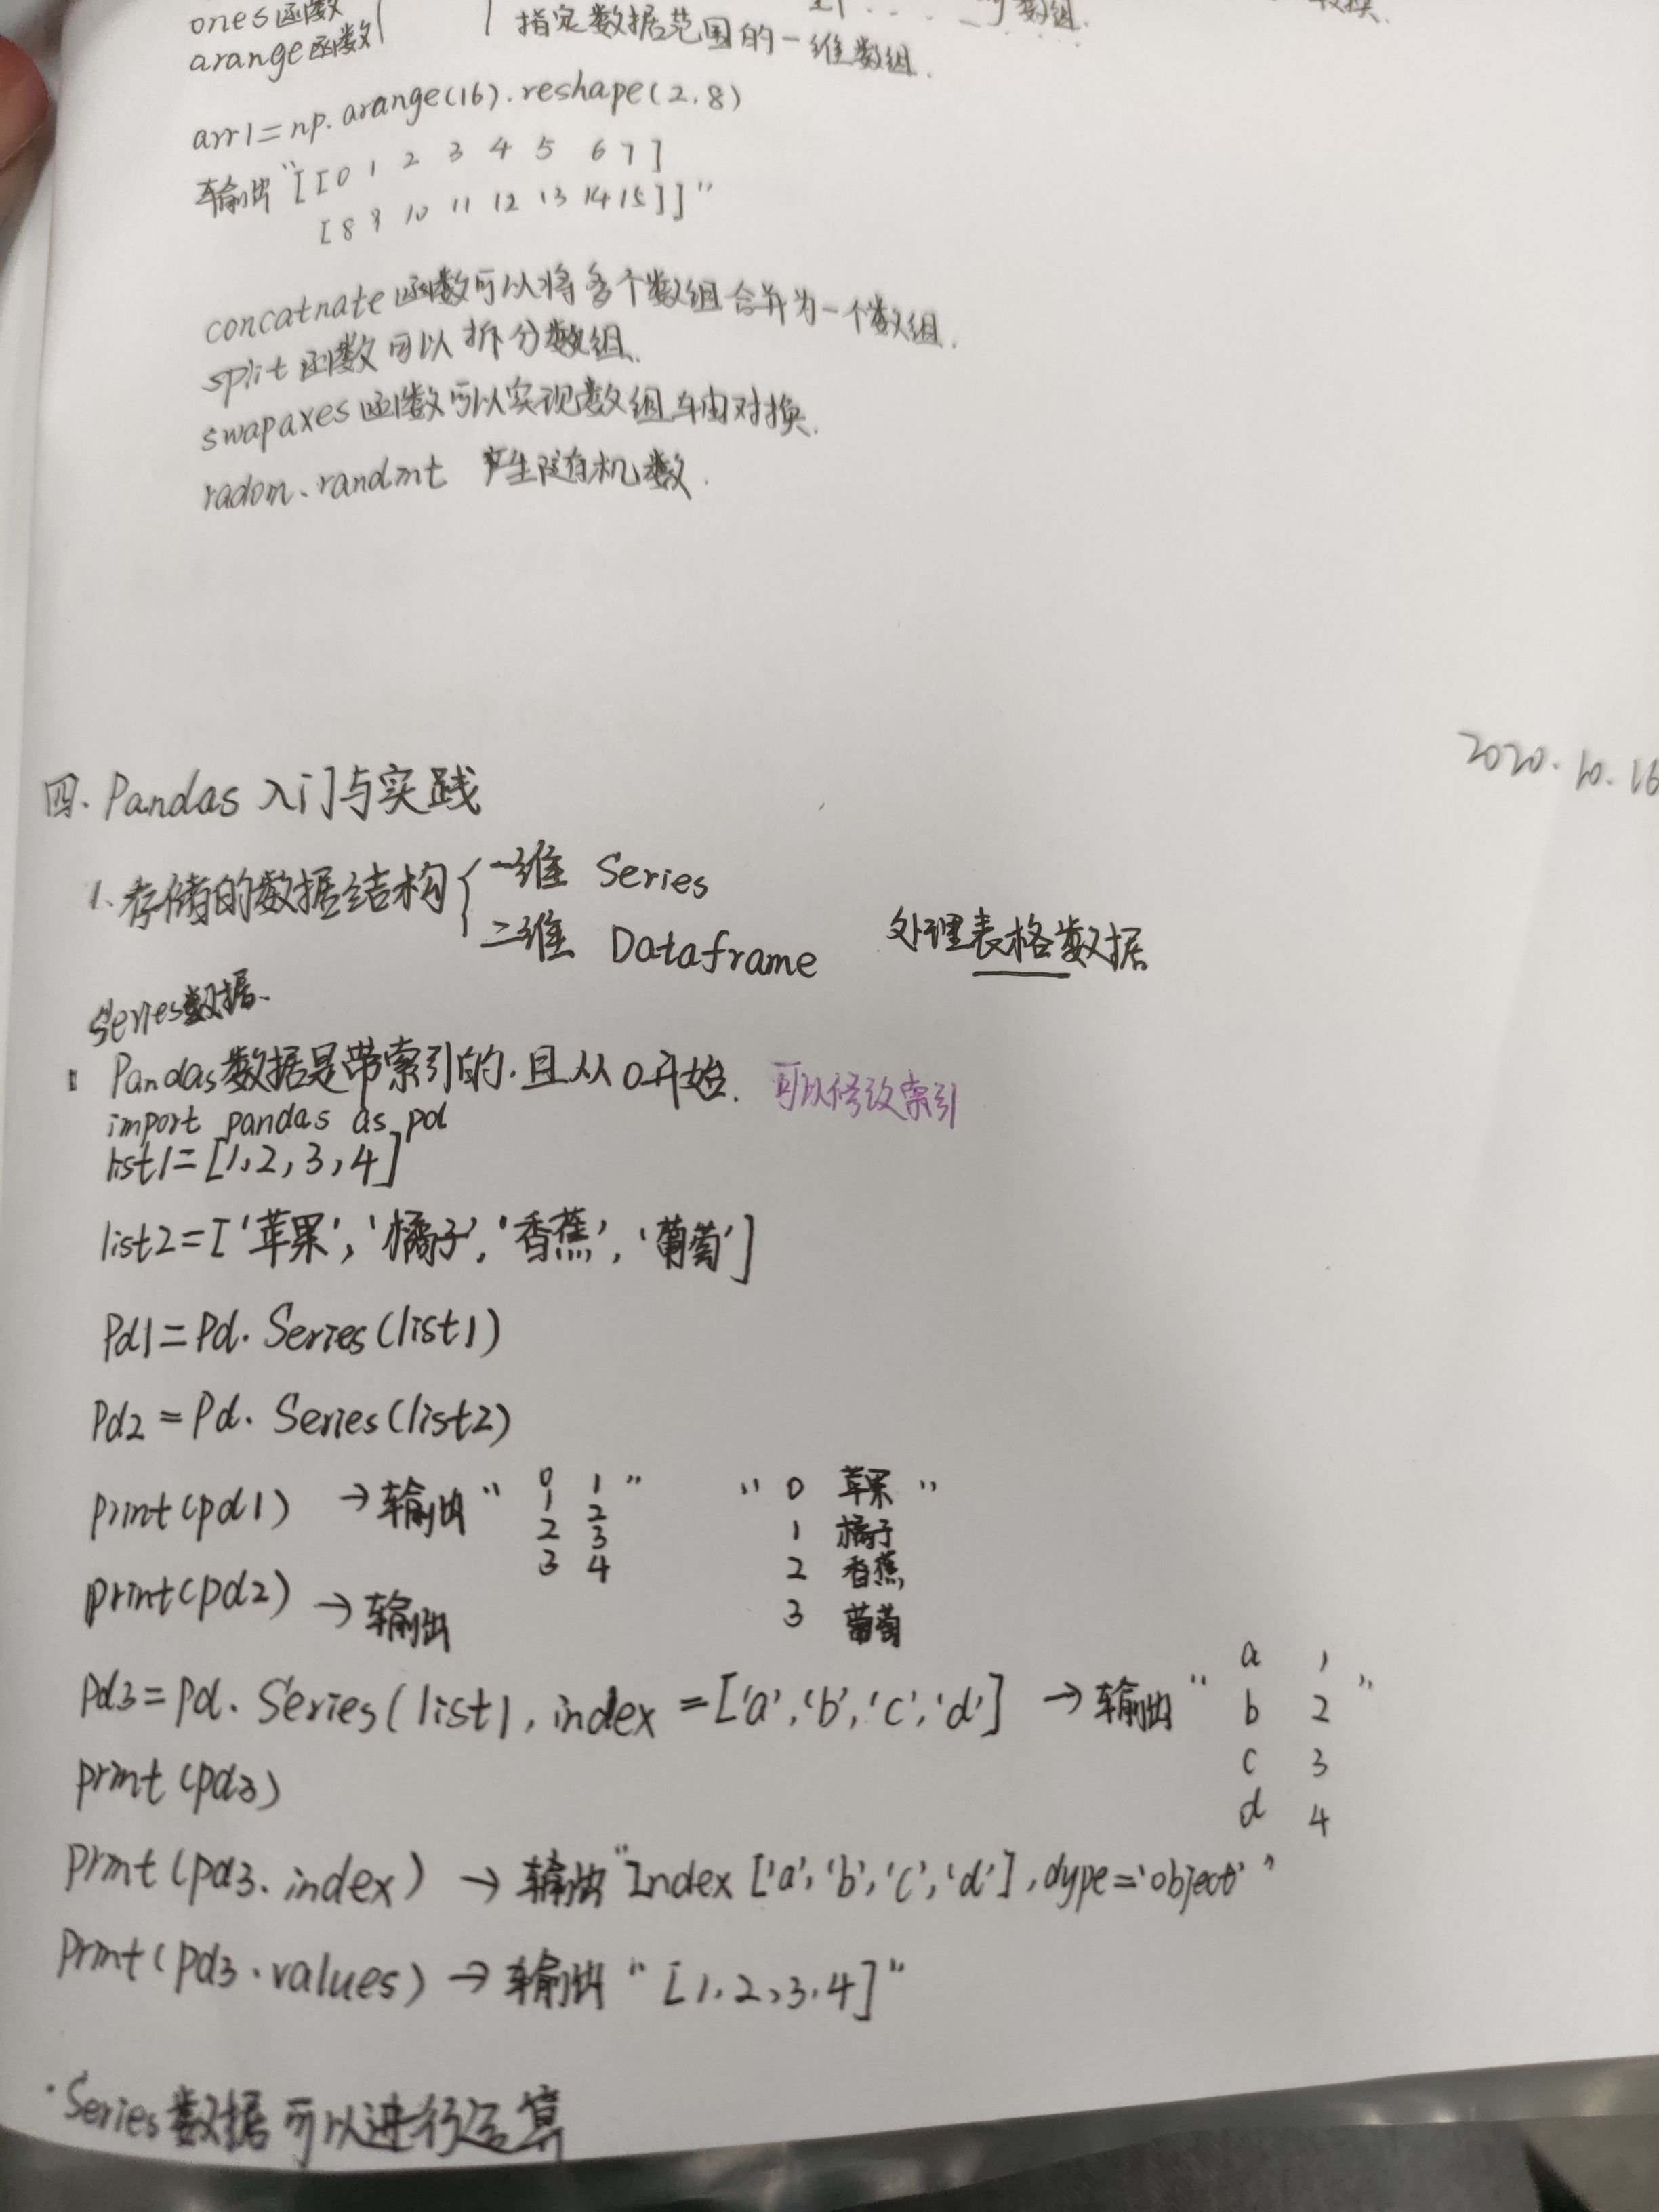 ones函数
arange函数
指定数据范围的一维数组.
arr1=np.arange(16).reshape(2,8)
输出“[[0 1 2 3 4 5 6 7]
[8 9 10 11 12 13 14 15]]”
concatnate函数可以将多个数组合并为一个数组.
split函数可以拆分数组.
swapaxes函数可以实现数组轴对换.
radom.randint 产生随机数.
2020.10.16
四.Pandas 入门与实践
1.存储的数据结构{一维 Series
二维 Dataframe 处理表格数据
Series数据.
Pandas数据是带索引的.且从0开始. 可以修改索引
import pandas as pd
list1=[1,2,3,4]
list2=['苹果','橘子','香蕉','葡萄']
Pd1=Pd.Series(list1)
Pd2=Pd.Series(list2)
print(pd1) →输出“ 0 1 ” “ 0 苹果 ”
1 2 1 橘子
2 3 2 香蕉
3 4 3 葡萄
print(pd2) →输出
Pd3=Pd.Series(list1,index=['a','b','c','d'] →输出“ a 1 ”
b 2
c 3
d 4
print(pd3)
Print(pd3.index) →输出“Index ['a','b','c','d'],dype='object'”
Print(pd3.values) →输出“[1,2,3,4]”
·Series数据可以进行运算